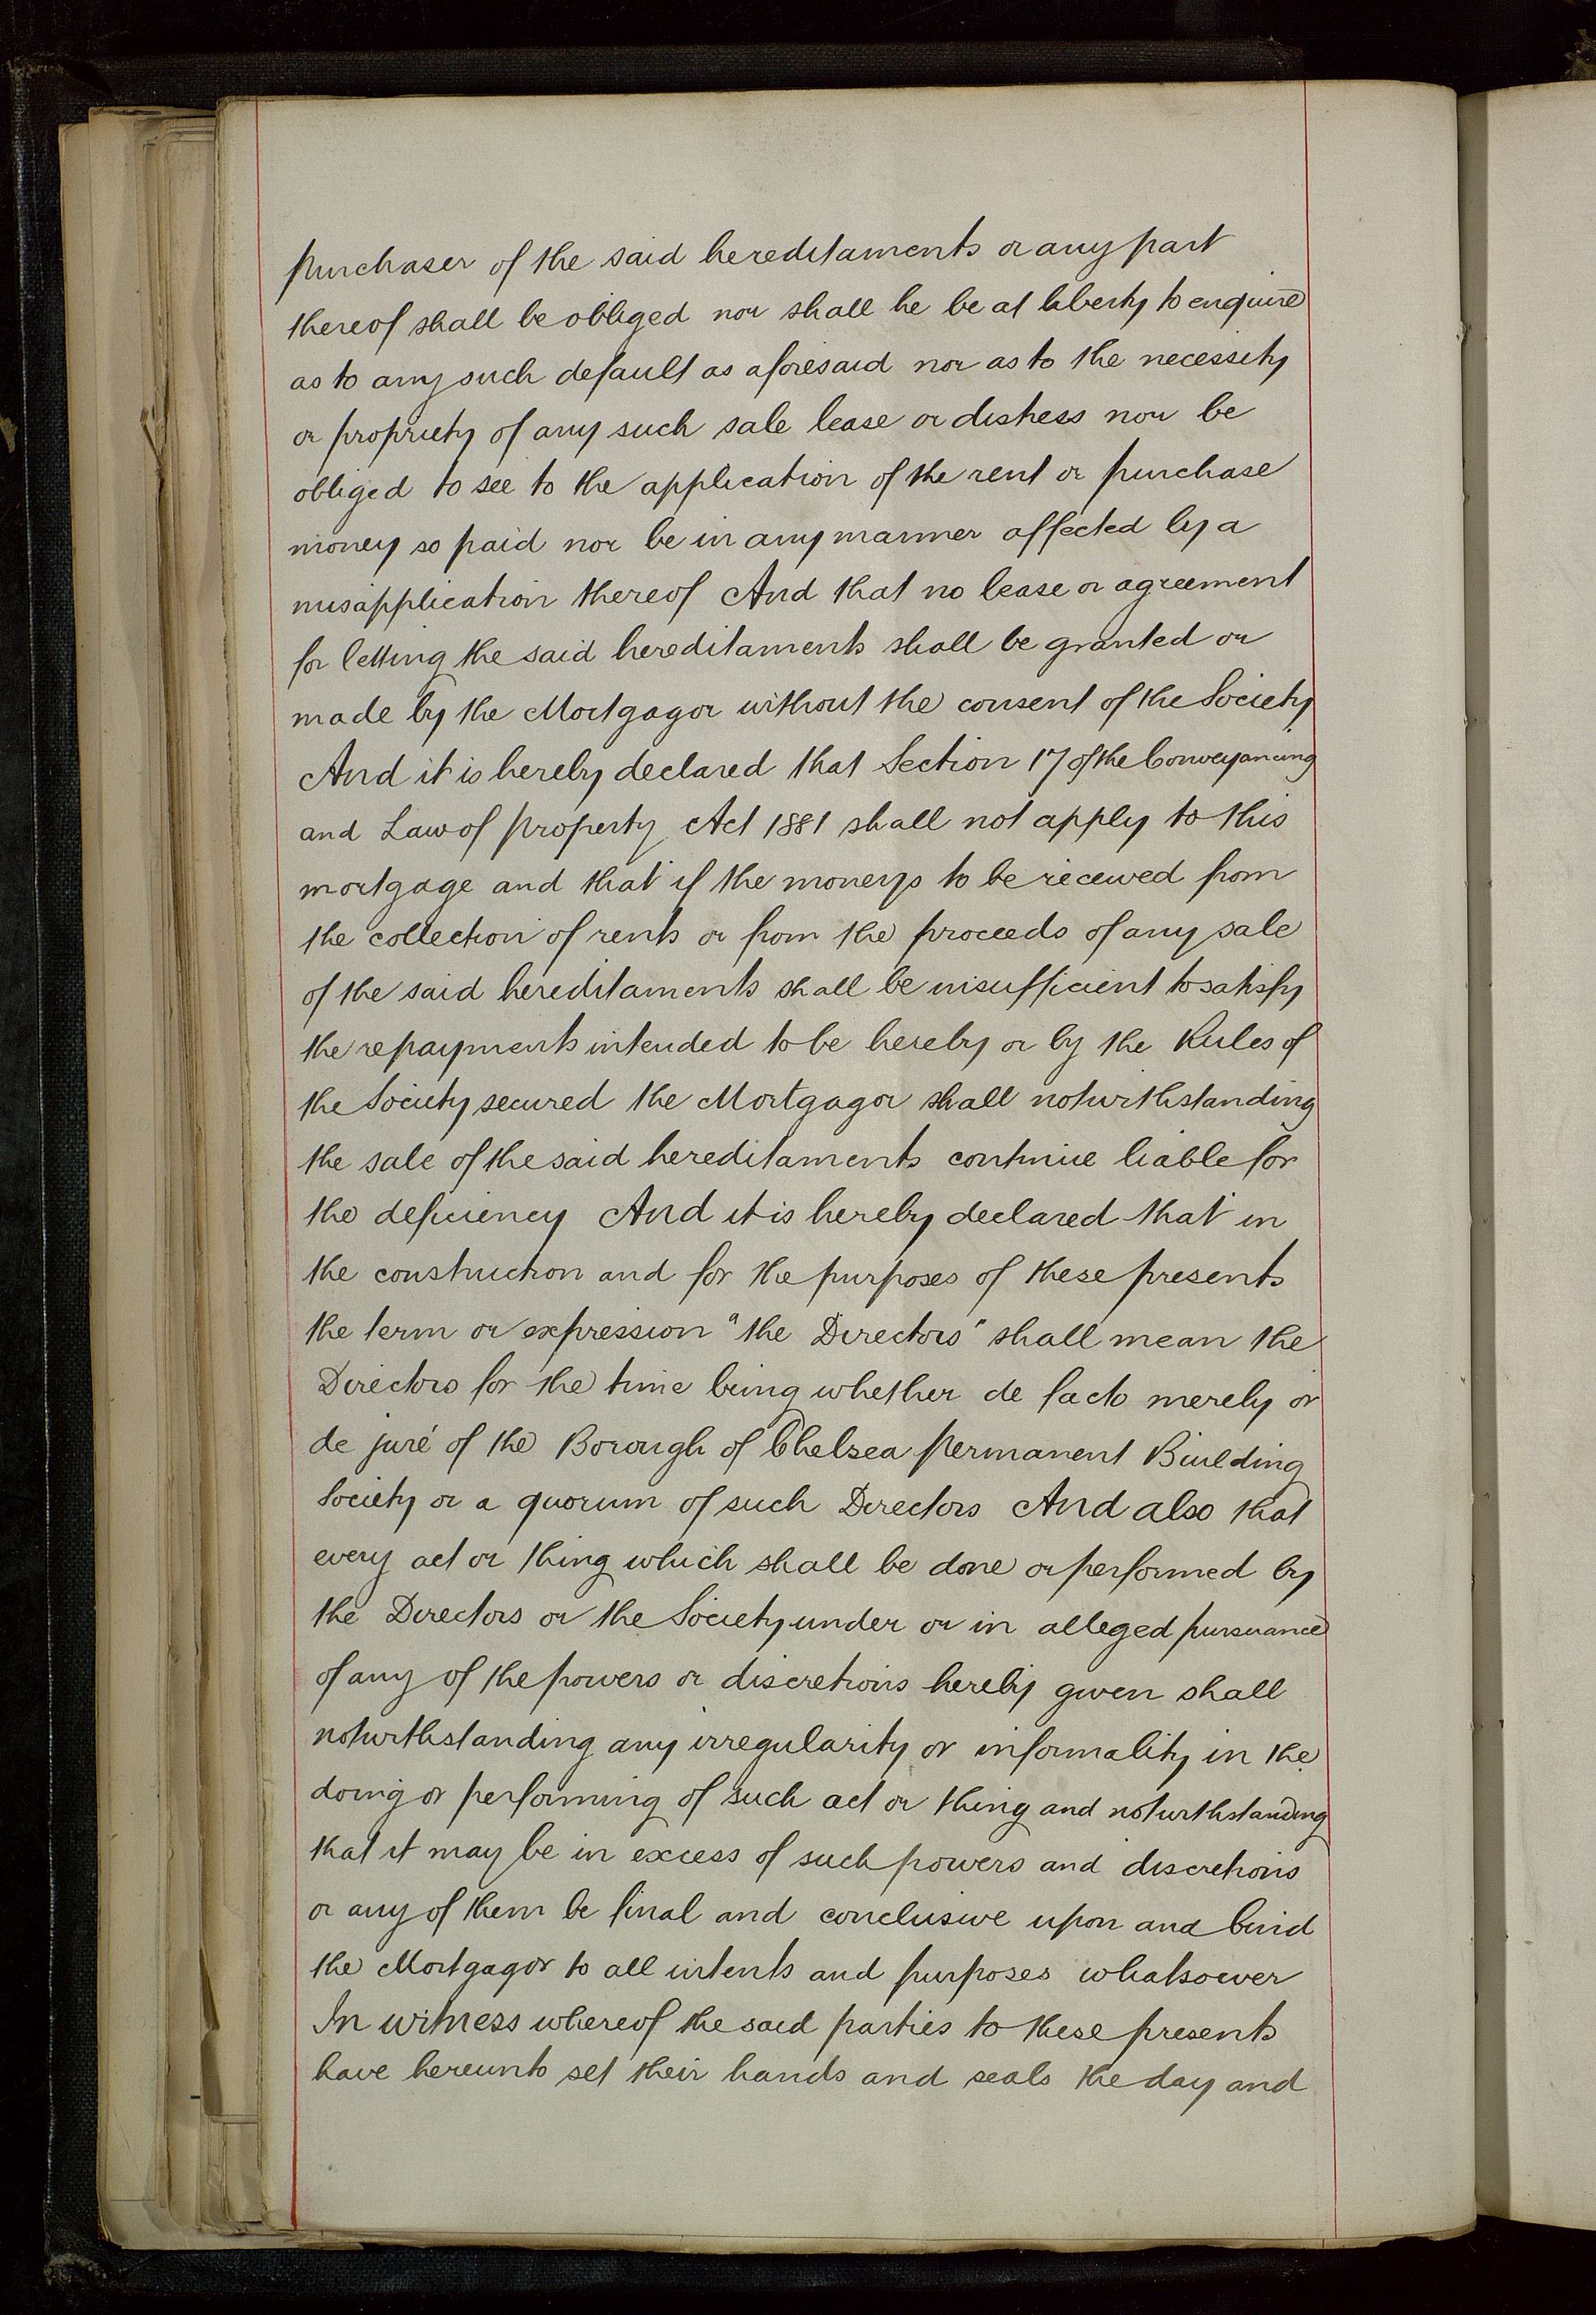 purchaser of the said hereditaments or any part
thereof shall be obliged nor shall he be at liberty to enquire
as to any such default as aforesaid nor as to the necessity
or propriety of any such sale lease or distress nor be
obliged to see to the application of the rent or purchase
money so paid nor be in any manner affected by a
misapplication thereof And that no lease or agreement
for letting the said hereditaments shall be granted or
made by the Mortgagor without the consent of the Society
And it is hereby declared that Section 17 of the Conveyancing
and Law of Property Act 1881 shall not apply to this
mortgage and that if the moneys to be received from
the collection of rents or from the proceeds of any sale
of the said hereditaments shall be insufficient to satisfy
the repayments intended to be hereby or by the Rules of
the Society secured the Mortgagor shall notwithstanding
the sale of the said hereditaments continue liable for
the deficiency And it is hereby declared that in
the construction and for the purposes of these presents
the term or expression "the Directors" shall mean the
Directors for the time being whether de facto merely or
de juré of the Borough of Chelsea Permanent Building
Society or a quorum of such Directors And also that
every act or thing which shall be done or performed by
the Directors or the Society under or in alleged pursuance
of any of the powers or discretions hereby given shall
notwithstanding any irregularity or informality in the
doing or performing of such act or thing and notwithstanding
that it may be in excess of such powers and discretions
or any of them be final and conclusive upon and bind
the Mortgagor to all intents and purposes whatsoever
In witness whereof the said parties to these presents
have hereunto set their hands and seals the day and